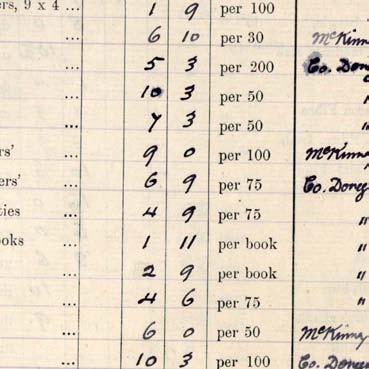 ers, 9 x 4 ... 1 9 per 100
... 6 10 per 30
... 5 3 per 200 Co.
... 10 3 per 50 "
... 7 3 per 50 "
rs' ... 9 0 per 100
ers' ... 6 9 per 75 Co.
ties ... 4 9 per 75 "
ooks ... 1 11 per book "
... 2 9 per book "
... 4 6 per 75 "
... 6 0 per 50
... 10 3 per 100 Co.